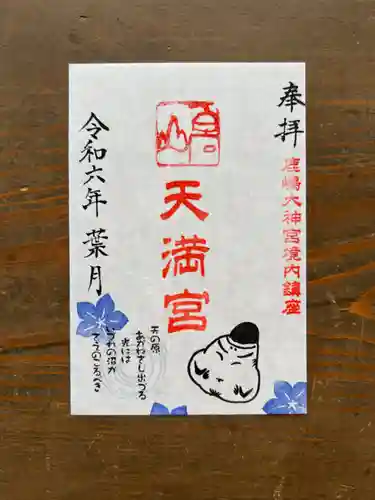 奉拝
鹿嶋大神宮境内鎮座
天満宮
令和六年 葉月
天の原
あかねさし出づる
光には
いづれの沼か
さえのこるべき